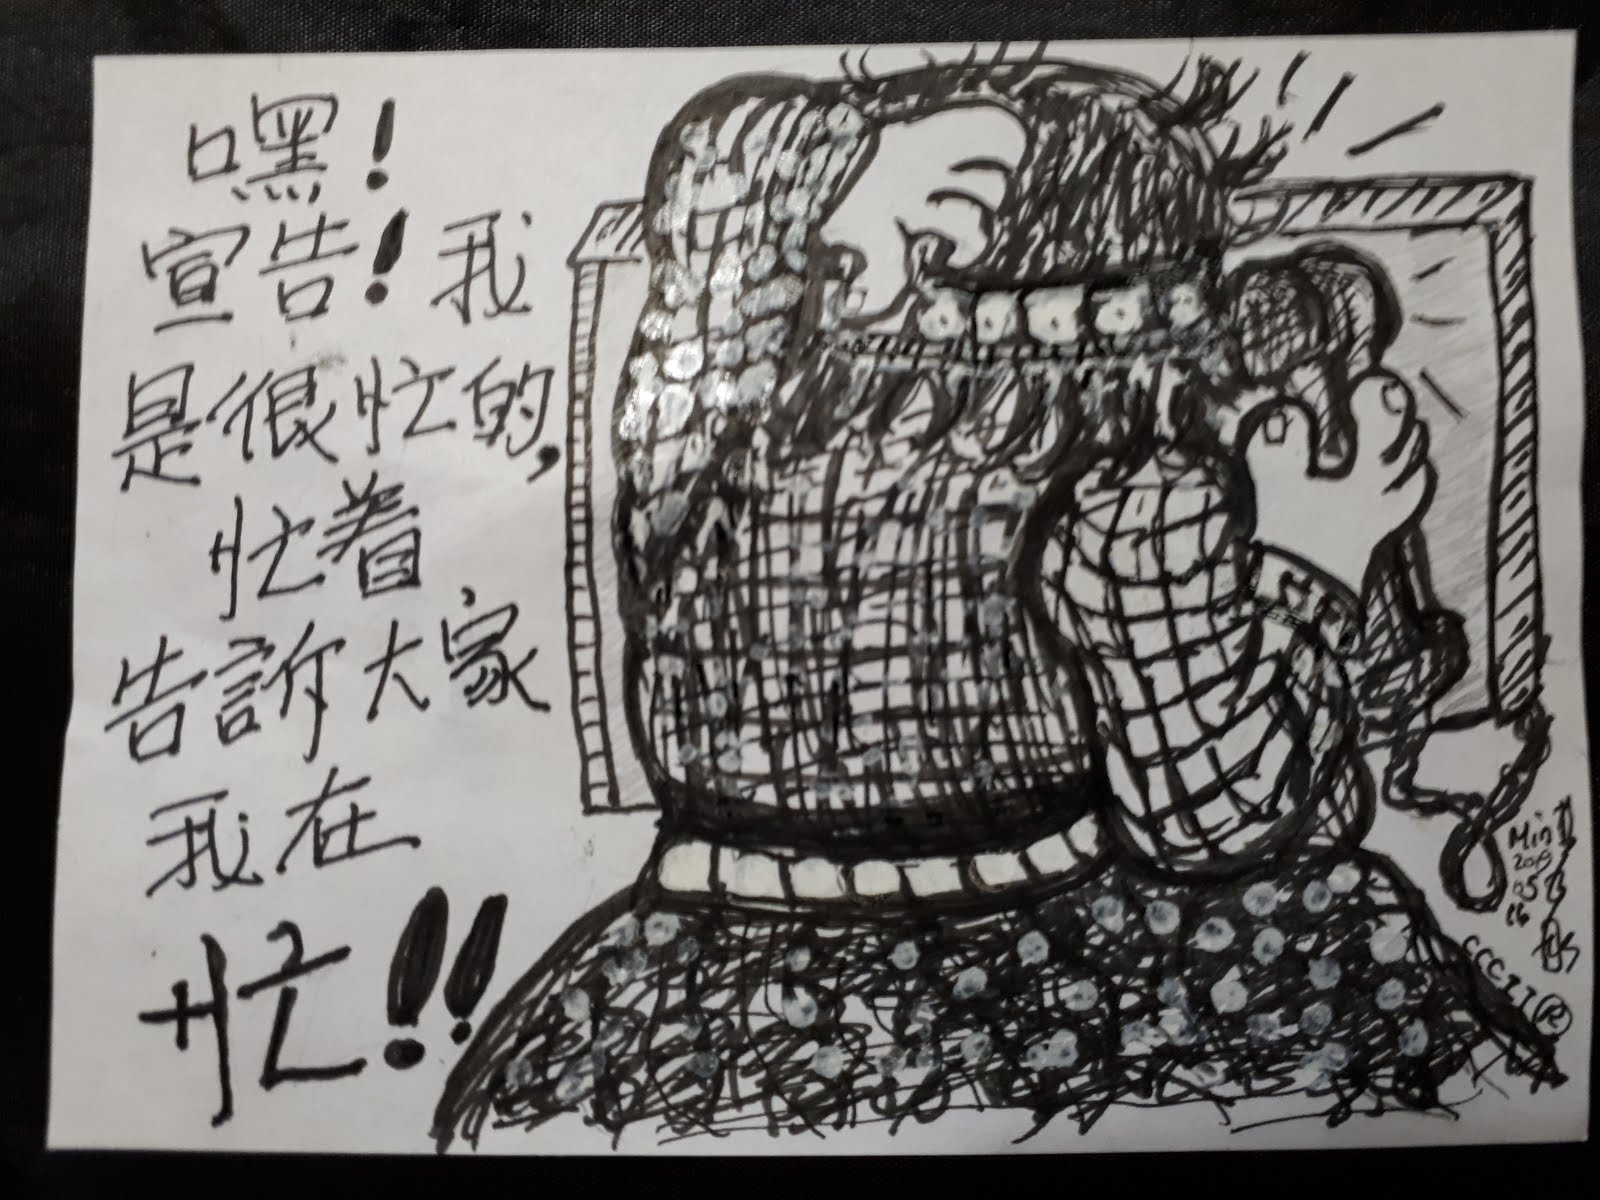 嘿!
宣告!我
是很忙的,
忙着
告訴大家
我在
忙!!
Min
2019
05
16
CCCII®